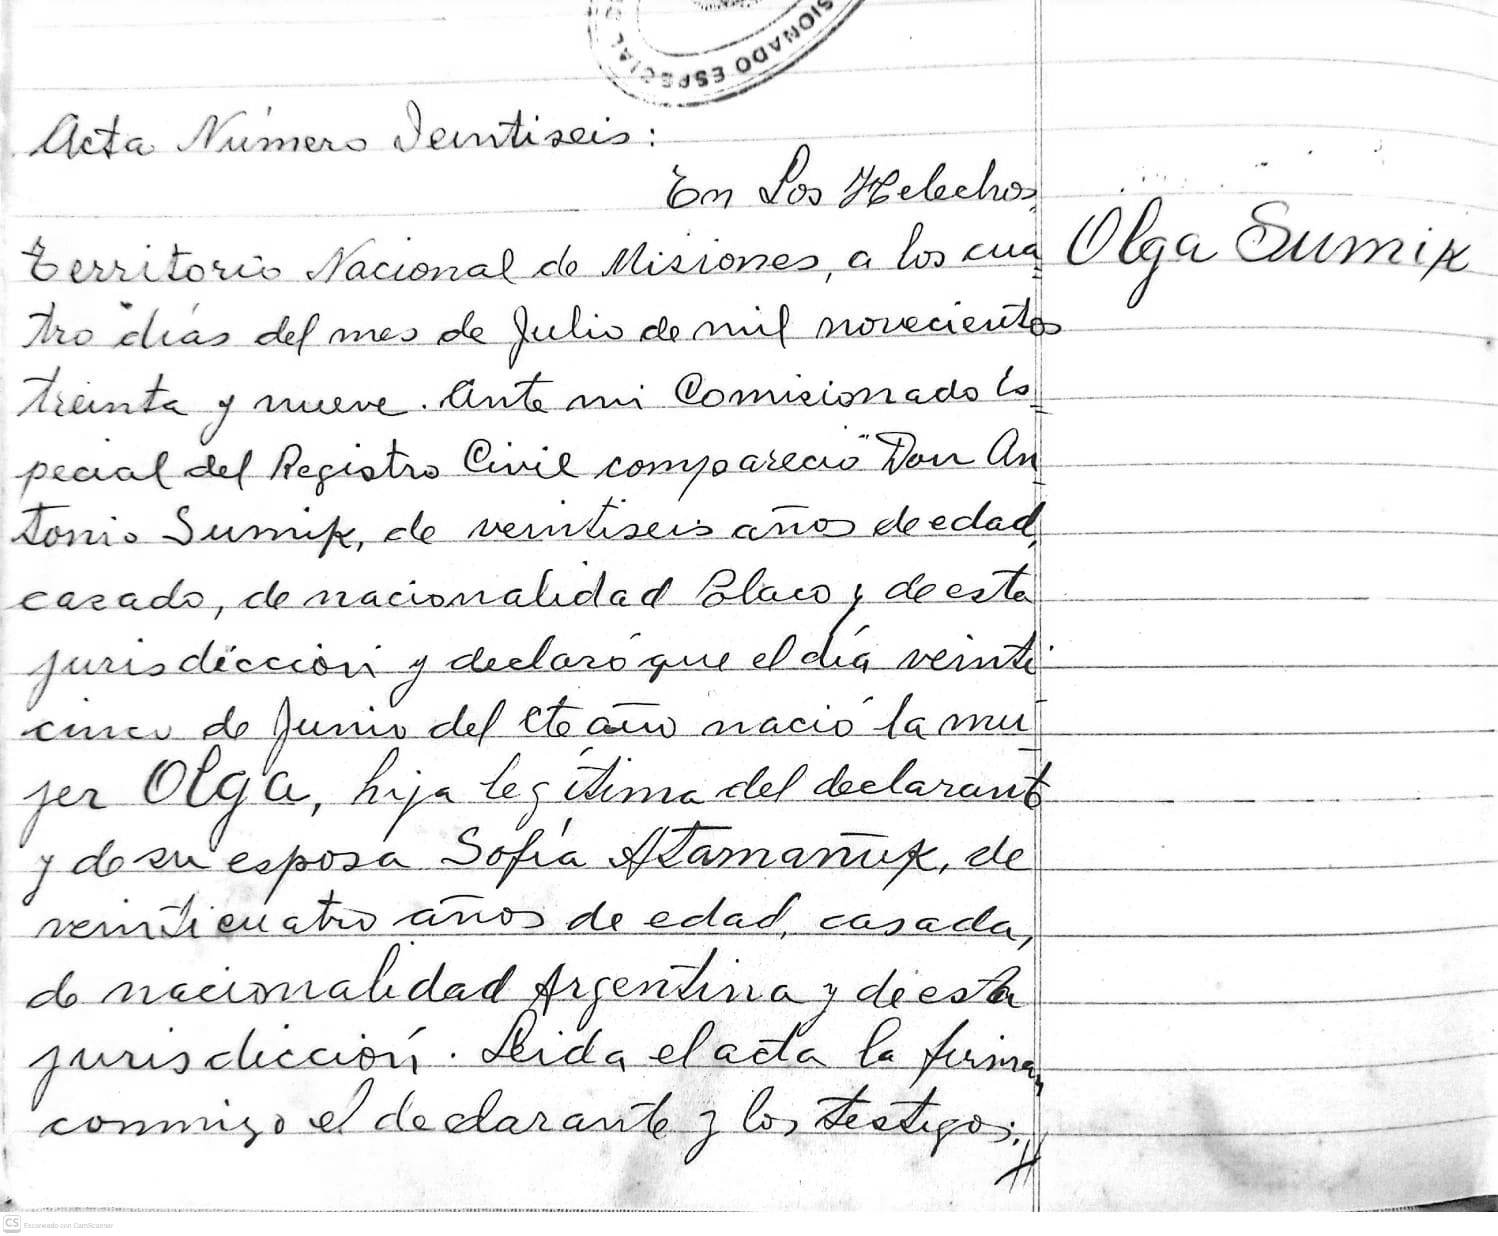 SIONADO ESPECIAL
Acta Número Veintiseis:
En Los Helechos,
Territorio Nacional de Misiones, a los cua
Olga Sumik
tro días del mes de Julio de mil novecientos
treinta y nueve. Ante mi Comisionado Es
pecial del Registro Civil compareció Don An
tonio Sumik, de veintiseis años de edad,
casado, de nacionalidad Polaco y de esta
jurisdicción y declaró que el día veinti
cinco de Junio del Cte año nació la mu
jer Olga, hija legítima del declarante
y de su esposa Sofía Atamañuk, de
veinticuatro años de edad, casada,
de nacionalidad Argentina y de esta
jurisdicción. Leida el acta la firman
conmigo el declarante y los testigos:
CS Escaneado con CamScanner